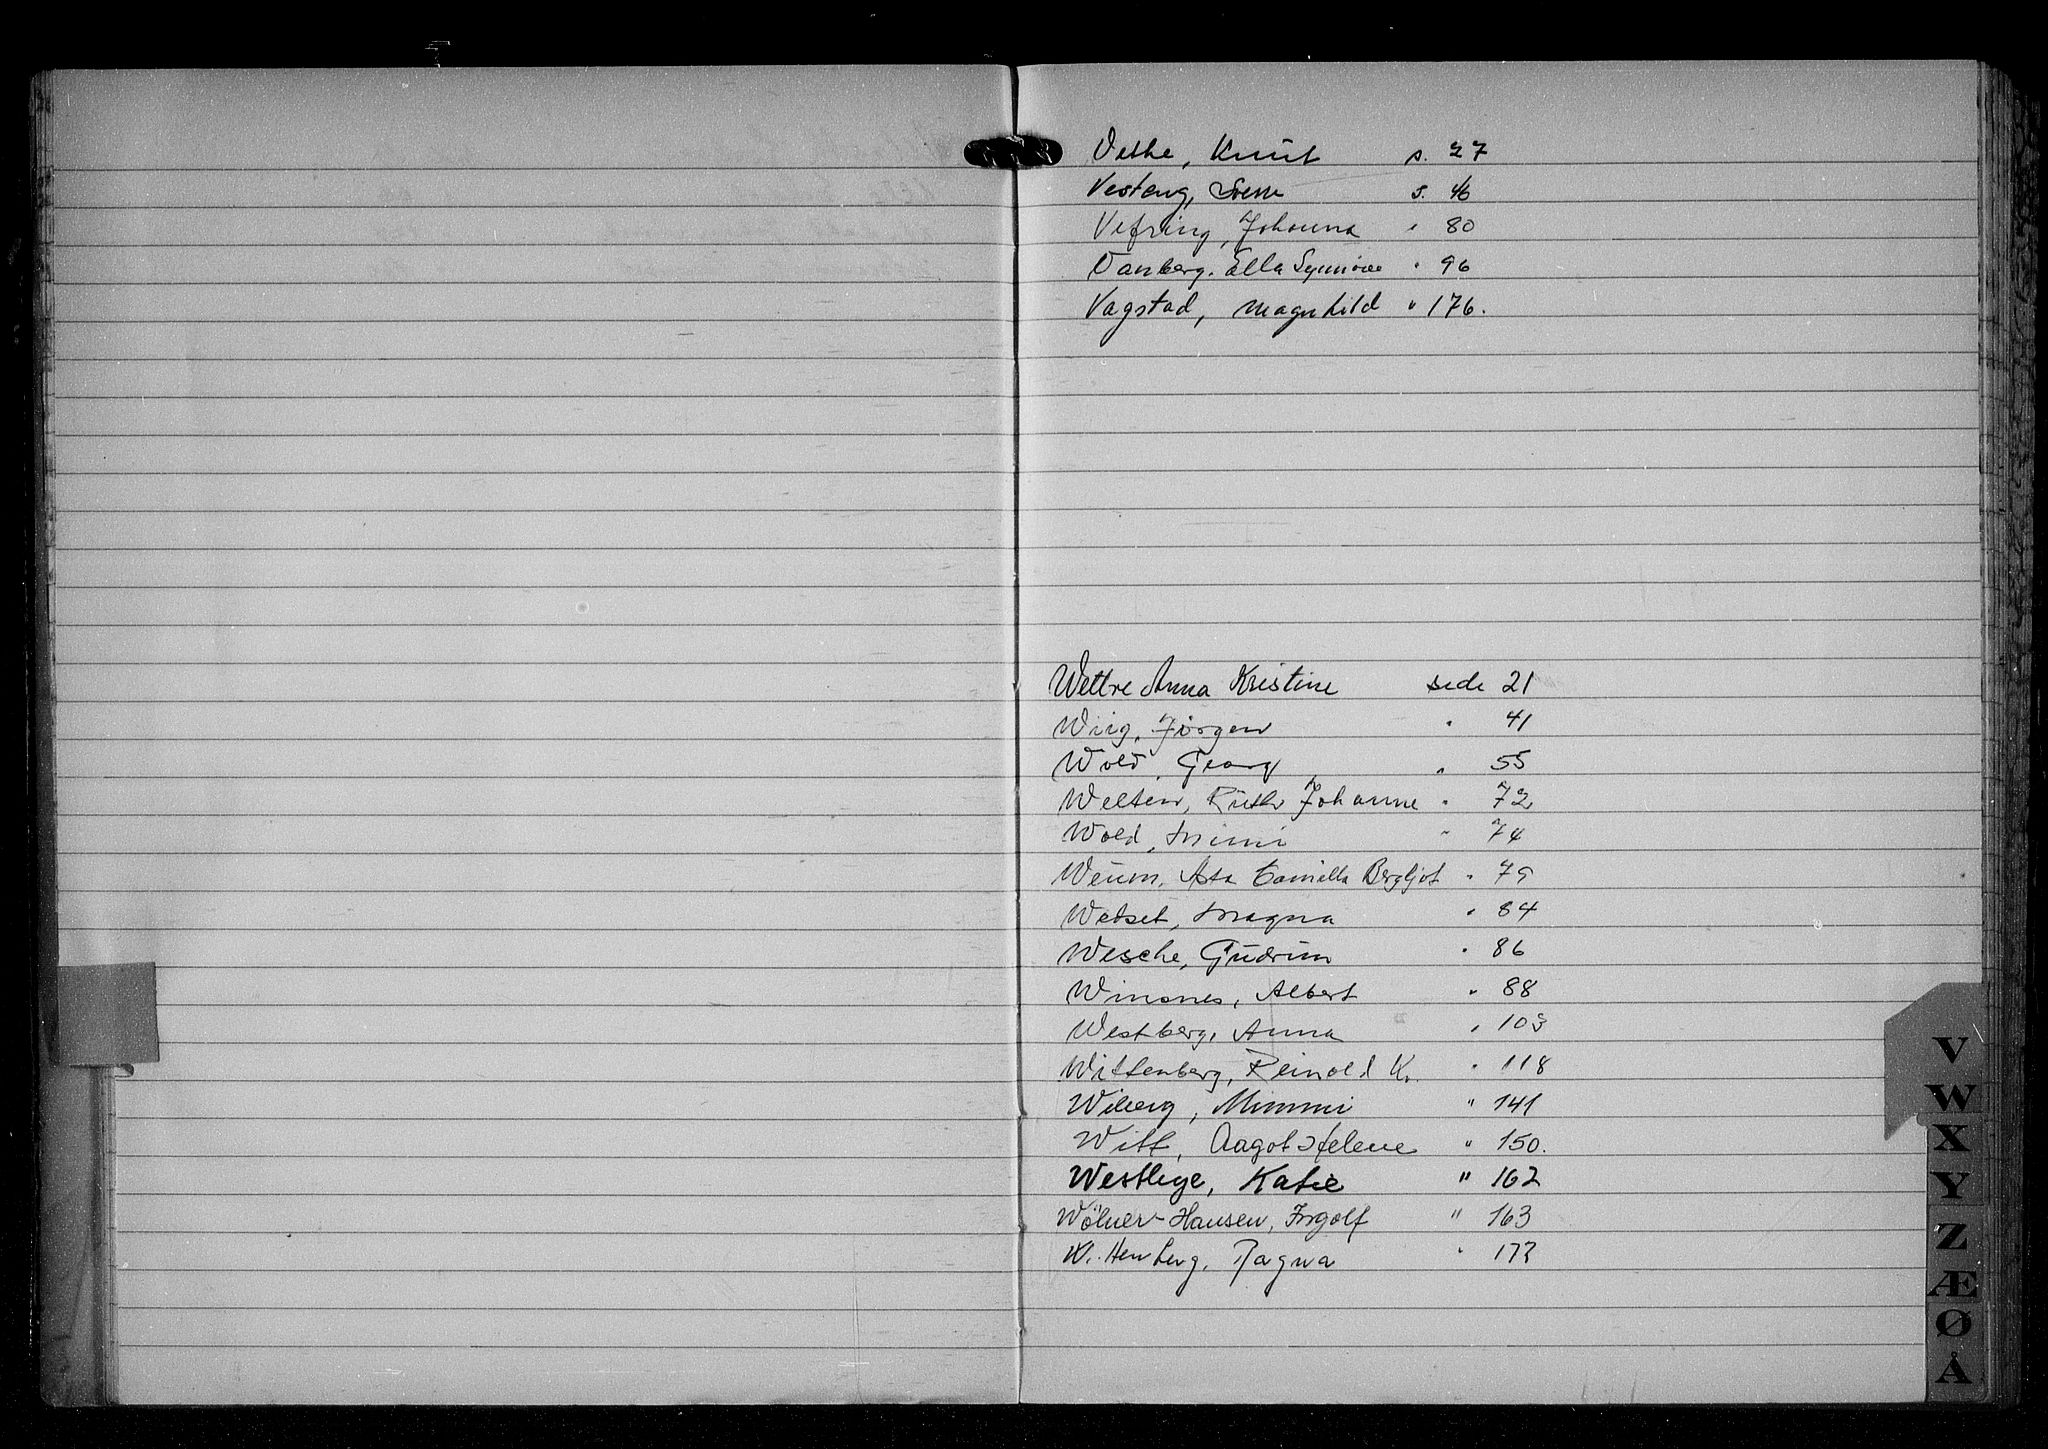 Vethe, Knut s. 27
Vesteng, Svenn s. 46
Vefring, Johanna " 80
Vanberg. Ella Synnöve " 96
Vagstad, Magnhild " 176.
Wettre Anna Kristine side 21
Wiig, Jörgen " 41
Wold, Georg " 55
Welten, Ruth Johanne " 72
Wold, Mimi " 74
Weum, Asta Camilla Bergljot " 79
Wedset, Magna " 84
Wesche, Gudrun " 86
Winsnes, Albert " 88
Westberg, Anna " 103
Wittenberg, Reinold K. " 118
Wiberg, Mimmi " 141
Witt, Aagot Helene " 150.
Westlige, Katie " 162
Wölner-Hansen, Ingolf " 163
Wittenberg, Ragna " 173
V
W
X
Y
Z
Æ
Ø
Å